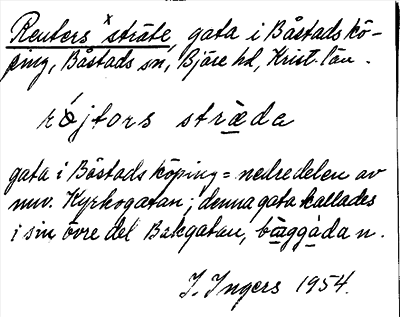 Reuters ˣsträte, gata i Båstads kö-
ping, Båstads sn, Bjäre hd, Krist. län.
rǿjtors stræ̀da
gata i Båstads köping = nedre delen av
nuv. Kyrkogatan; denna gata kallades
i sin övre del Bakgatan, bàggáda n.
I. Ingers 1954.